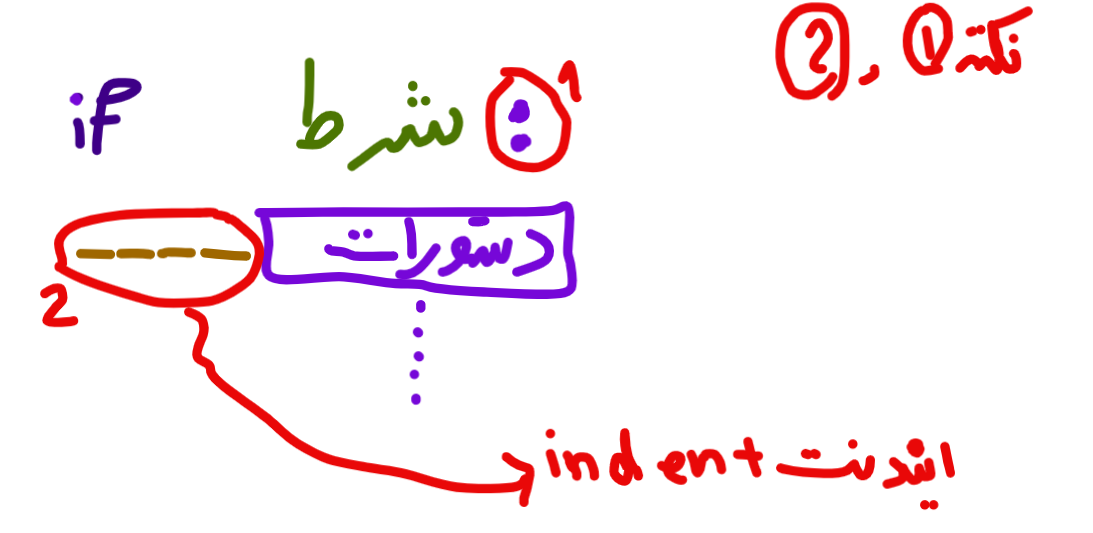 نکته ① و ②
if شرط : 1
2 ---- دستورات
indent ایندنت